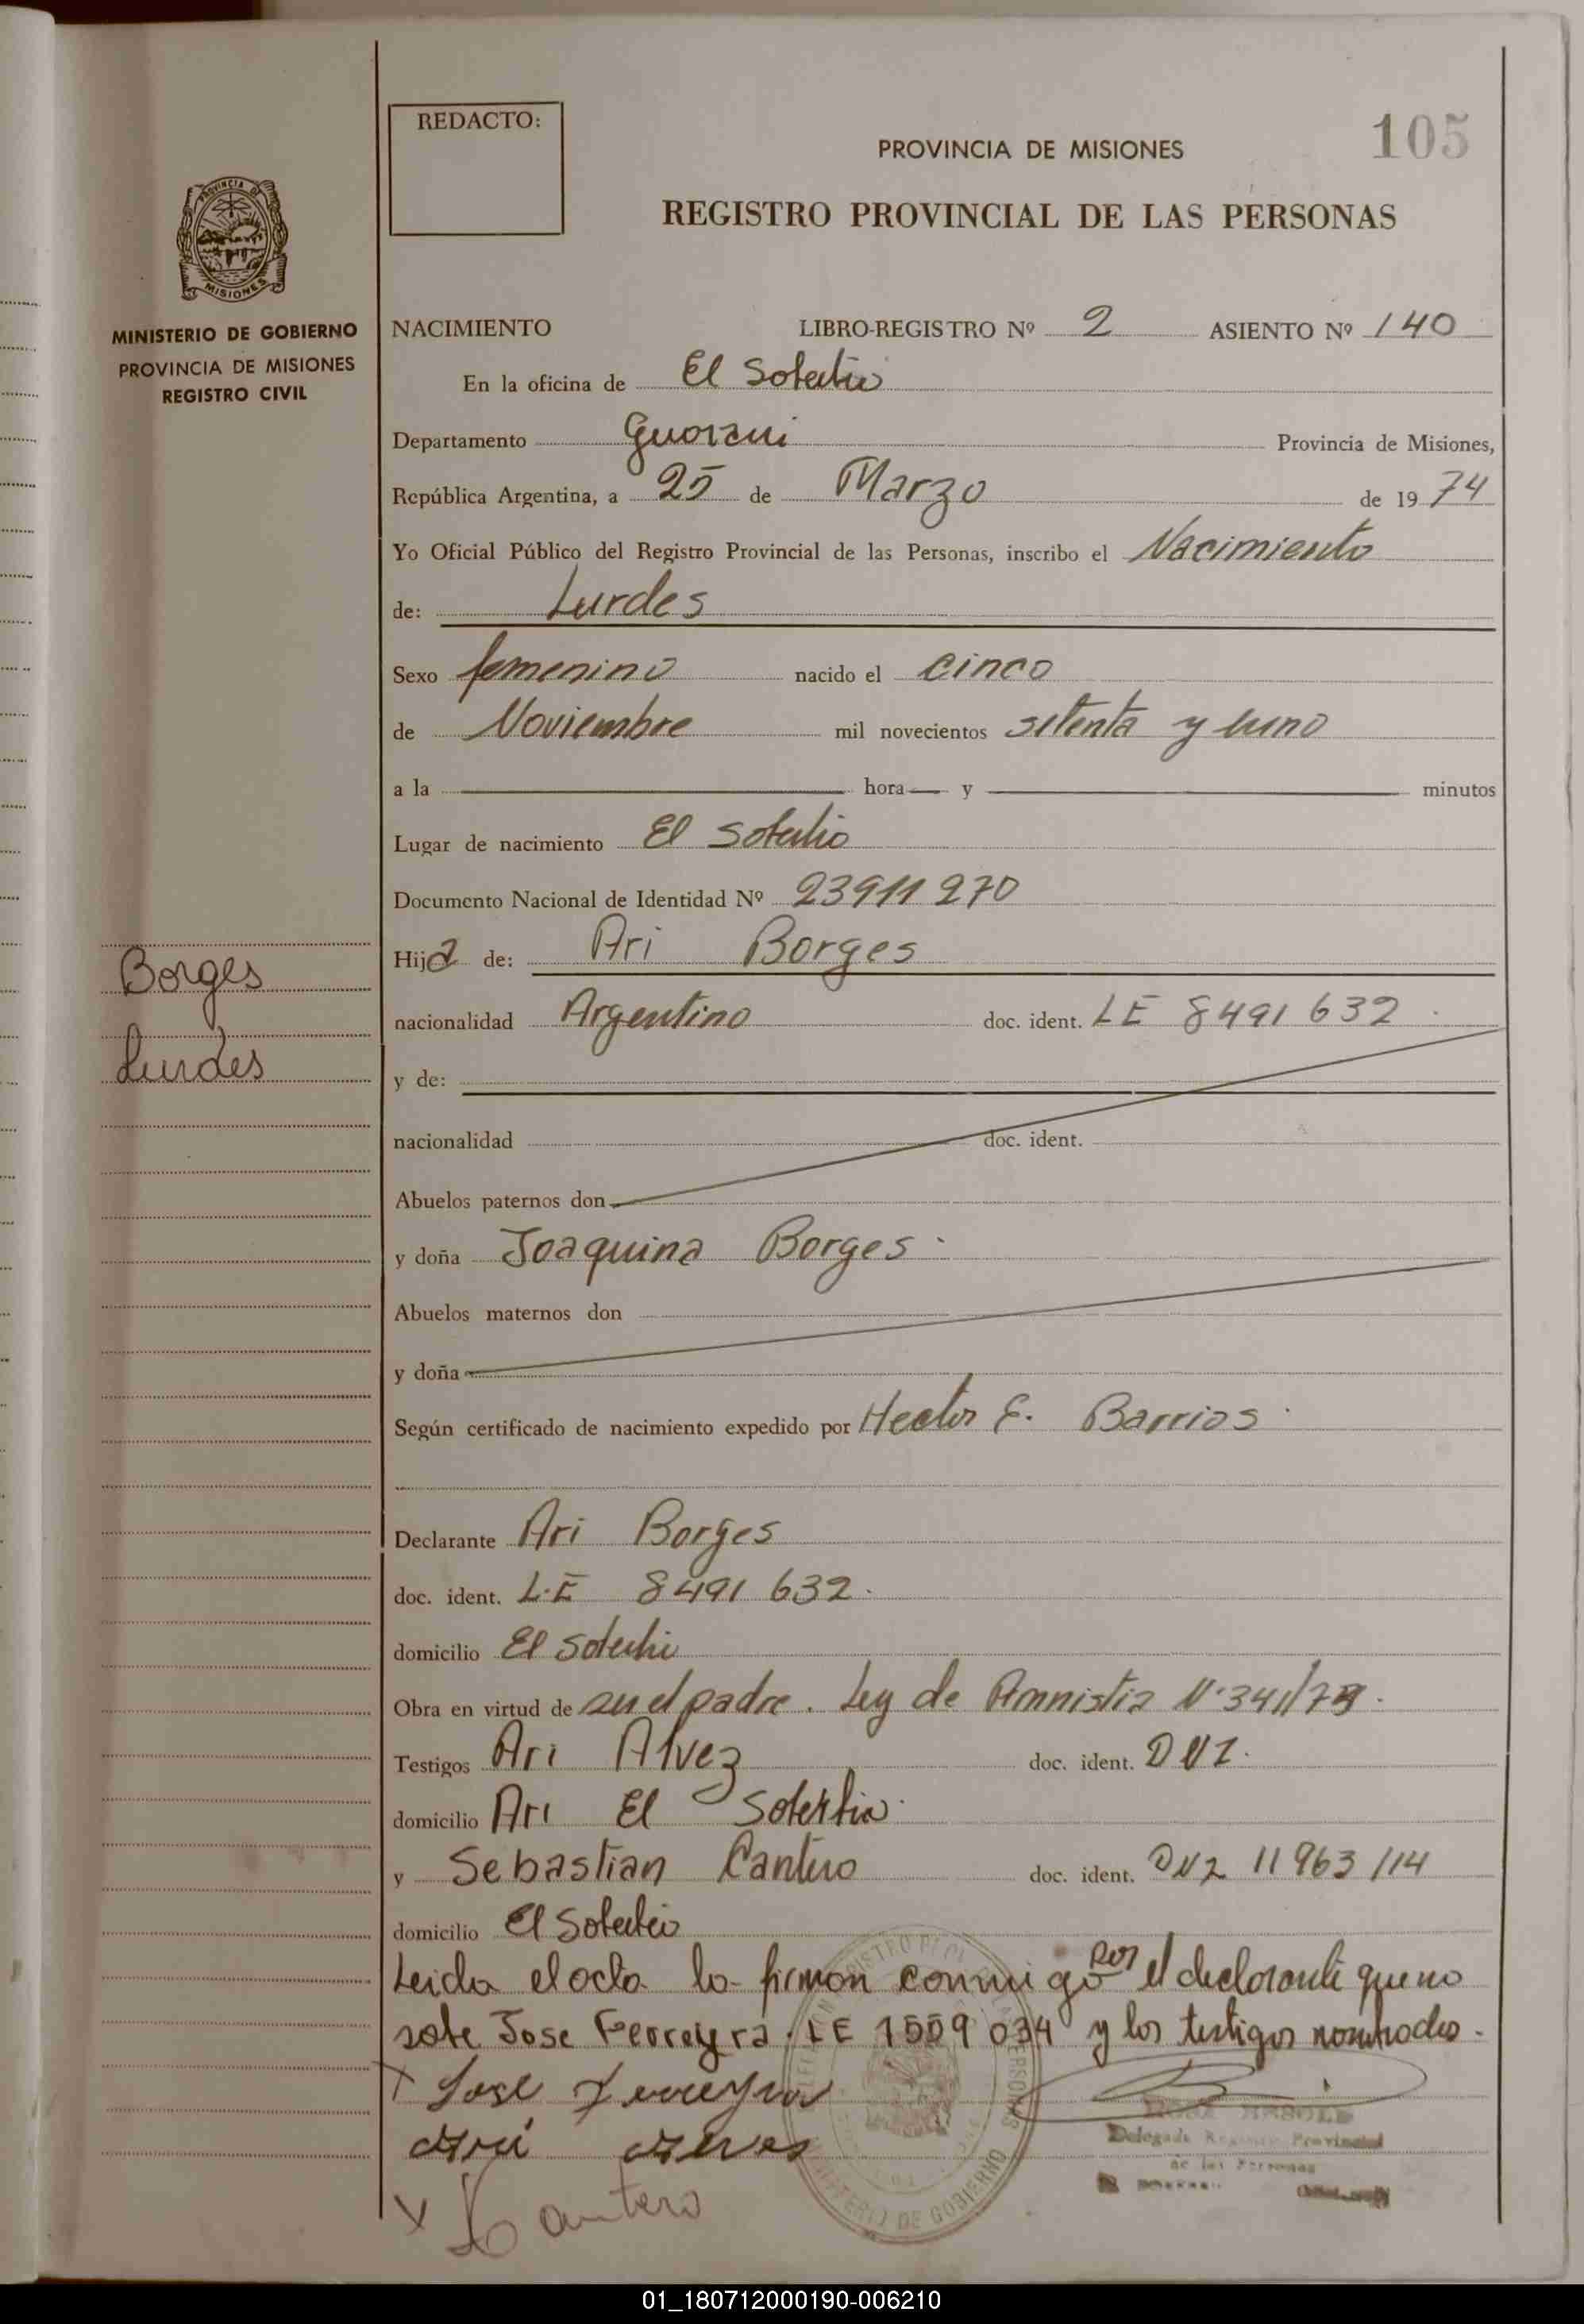 105
REDACTO:
PROVINCIA DE MISIONES
REGISTRO PROVINCIAL DE LAS PERSONAS
PROVINCIA DE
MISIONES
MINISTERIO DE GOBIERNO
PROVINCIA DE MISIONES
REGISTRO CIVIL
NACIMIENTO LIBRO-REGISTRO Nº 2 ASIENTO Nº 140
En la oficina de El Soberbio
Departamento Guarani Provincia de Misiones,
República Argentina, a 25 de Marzo de 1974
Yo Oficial Público del Registro Provincial de las Personas, inscribo el Nacimiento
de: Lurdes
Sexo femenino nacido el cinco
de Noviembre mil novecientos setenta y uno
a la hora y minutos
Lugar de nacimiento El Soberbio
Documento Nacional de Identidad Nº 23911270
Hija de: Ari Borges
nacionalidad Argentino doc. ident. LE 8491632
y de:
nacionalidad doc. ident.
Abuelos paternos don
y doña Joaquina Borges
Abuelos maternos don
y doña
Según certificado de nacimiento expedido por Hector E. Barrios
Declarante Ari Borges
doc. ident. L.E 8491632.
domicilio El Soberbio
Obra en virtud de ser el padre. Ley de Amnistia Nº 341/73.
Testigos Ari Alvez doc. ident. DNI.
domicilio Ari El Soberbio.
y Sebastian Cantero doc. ident. DNI 11963114
domicilio El Soberbio
Leida el acta la firman conmigo por el declarante que no
sabe Jose Ferreyra. LE 1559034 y los testigos nombrados.
x Jose Ferreyra
x Cantero
Delegada Registro Provincial
de las Personas
MINISTERIO DE GOBIERNO
Borges
Lurdes
01_180712000190-006210